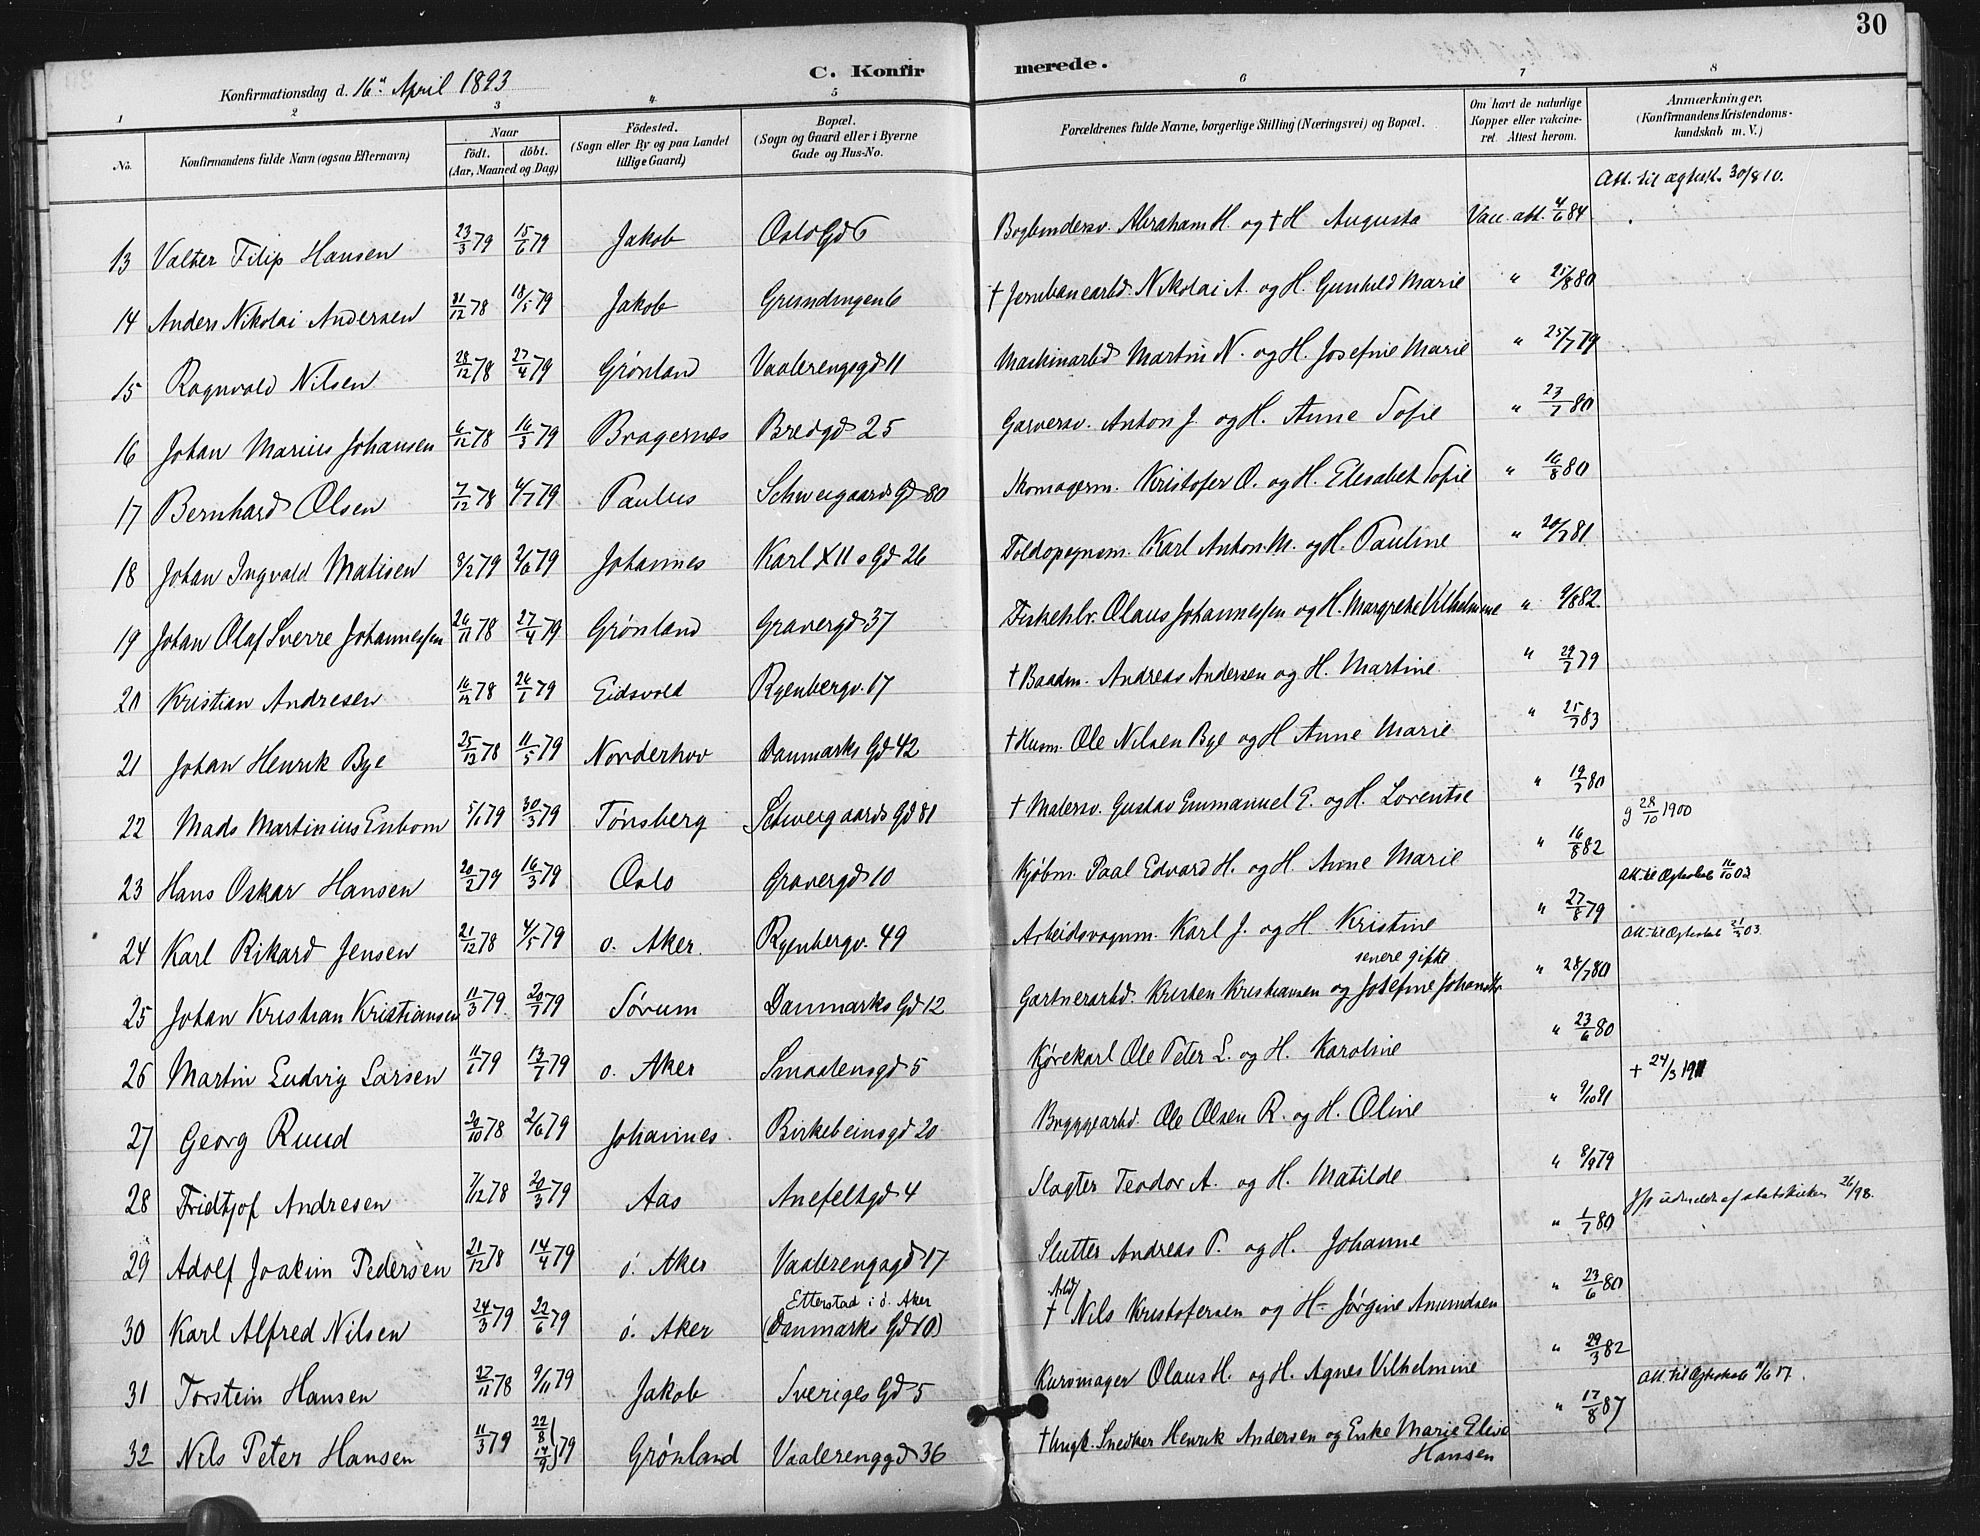 30
Konfirmationsdag d. 16de April 1893
C. Konfirmerede.
1 2 3 4 5 6 7 8
No. Konfirmandens fulde Navn (ogsaa Efternavn) Naar født. døbt. (Aar, Maaned og Dag) Fødested. (Sogn eller By og paa Landet tillige Gaard) Bopæl. (Sogn og Gaard eller i Byerne Gade og Hus-No. Forældrenes fulde Navne, borgerlige Stilling (Næringsvei) og Bopæl. Om havt de naturlige Kopper eller vakcineret. Attest herom. Anmærkninger. (Konfirmandens Kristendomskundskab m. V.)
Att. til ægtesk. 30/8 10.
13 Valter Filip Hansen 23/3 79 15/6 79 Jakob Oslo Gd 6 Bogbindersv. Abraham H. og † H Augusta Vacc. att. 4/6 84
14 Anders Nikolai Andersen 31/12 78 18/5 79 Jakob Grundingen 6 † Jernbanearbd. Nikolai A. og H. Gunhild Marie " 25/8 80
15 Ragnvald Nilsen 28/12 78 27/4 79 Grønland Vaalerengsgd 11 Maskinarbd Martin N. og H. Josefine Marie " 25/7 79
16 Johan Marius Johansen 6/12 78 16/3 79 Bragernes Bredgd 25 Garversv. Anton J. og H. Anne Sofie " 23/7 80
17 Bernhard Olsen 7/12 78 6/7 79 Paulus Schweigaards Gd 80 Skomagerm. Kristofer O. og H. Elisabet Sofie " 16/8 80
18 Johan Ingvald Matisen 8/2 79 2/6 79 Johannes Karl XII s Gd 26 Toldopsynsm. Karl Anton M. og H. Pauline " 20/7 81
19 Johan Olaf Sverre Johannessen 26/11 78 27/4 79 Grønland Gravergd 37 Fiskehlr. Olaus Johannessen og H. Margrete Vilhelmine " 9/8 82.
20 Kristian Andresen 16/12 78 26/1 79 Eidsvold Ryenbergv. 17 † Baadm. Andreas Andersen og H. Martine " 29/7 79
21 Johan Henrik Bye 25/12 78 11/5 79 Norderhov Danmarks Gd 42 † Husm. Ole Nilsen Bye og H Anne Marie " 25/7 83
22 Mads Martinius Enbom 5/1 79 30/3 79 Tønsberg Schweigaards Gd 81 † Malersv. Gustav Emmanuel E. og H. Lorentse " 19/7 80
g 28/10 1900
23 Hans Oskar Hansen 20/2 79 16/3 79 Oslo Gravergd 10 Kjøbm. Paal Edvard H. og H. Anne Marie " 16/8 82
Att. til Ægteskab 16/10 02
24 Karl Rikard Jensen 21/12 78 4/5 79 ø. Aker. Ryenbergv. 49 Arbeidsvognm. Karl J. og H. Kristine " 27/8 79
Att. til Ægteskab 21/3 03.
senere gifte
25 Johan Kristian Kristiansen 11/3 79. 20/7 79 Sørum Danmarks Gd 12 Gartnerarbd. Kristen Kristiansen og Josefine Johansdtr " 28/7 80
26 Martin Ludvig Larsen 11/1 79 13/7 79 ø. Aker Smaalensgd 5 Kjørekarl Ole Peter L. og H. Karoline " 23/6 80
† 24/3 1911
27 Georg Ruud 29/10 78 2/6 79 Johannes. Birkebeinsgd 20 Bryggearbd. Ole Olsen R. og H. Oline " 9/10 91
28 Fridtjof Andresen 7/12 78 20/3 79 Aas Anefeltgd 4 Slagter Teodor A. og H. Matilde " 8/9 79
29 Adolf Joakim Pedersen 21/12 78 14/4 79 ø. Aker Vaalerengsgd 17 Slutter Andreas P. og H. Johanne " 1/7 80
Etterstad i ø. Aker
Arbd
30 Karl Alfred Nilsen 24/3 79 22/6 79 ø. Aker (Danmarks Gd 10) † Nils Kristofersen og H- Jørgine Amundsen " 23/6 80
31 Torstein Hansen 22/11 78 9/11 79 Jakob Sveriges Gd 5 Kurvmager Olaus H. og H. Agnes Vilhelmine " 29/3 82
Att. til Ægteskab 11/6 17.
32 Nils Peter Hansen 11/3 79 22/8 14/9 79 Grønland Vaalerenggd 36 † Ungk. Snedker Henrik Andersen og Enke Marie Elise Hansen " 17/8 87